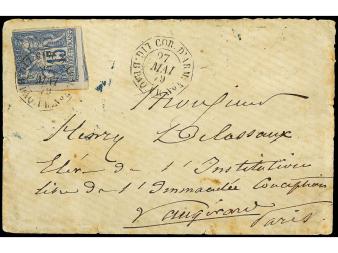 COR. D'ARM
27
MAI
79
15
Monsieur
Henry Delassaux
Elève de l'Institution
libre de l'Immaculée Conception
Vaugirard
Paris